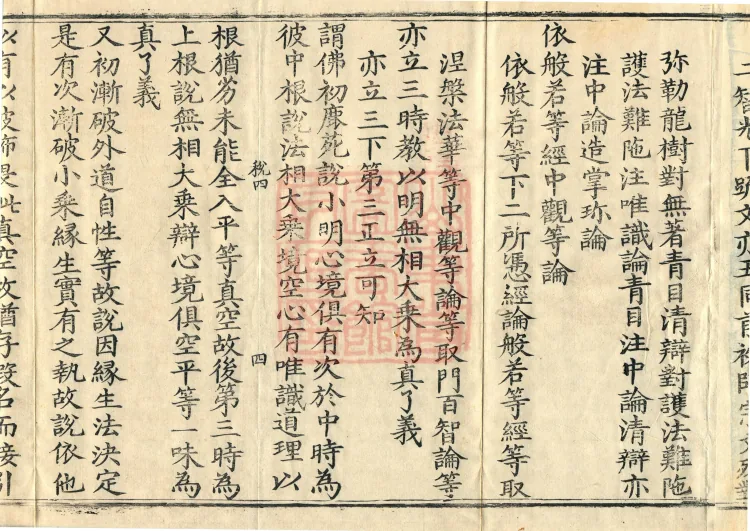 弥勒龍樹對無著青目清辯對護法難陁
護法難陁注唯識論青目注中論清辯亦
注中論造掌珎論
依般若等經中觀等論
依般若等下二所憑經論般若等經等取
涅槃法華等中觀等論等取門百智論等
亦立三時教以明無相大乘為真了義
亦立三下第三正立可知
謂佛初鹿苑說小明心境俱有次於中時為
彼中根說法相大乘境空心有唯識道理以
税四
四
根猶劣未能全入平等真空故後第三時為
上根說無相大乘辯心境俱空平等一味為
真了義
又初漸破外道自性等故說因縁生法決定
是有次漸破小乘縁生實有之執故說依他